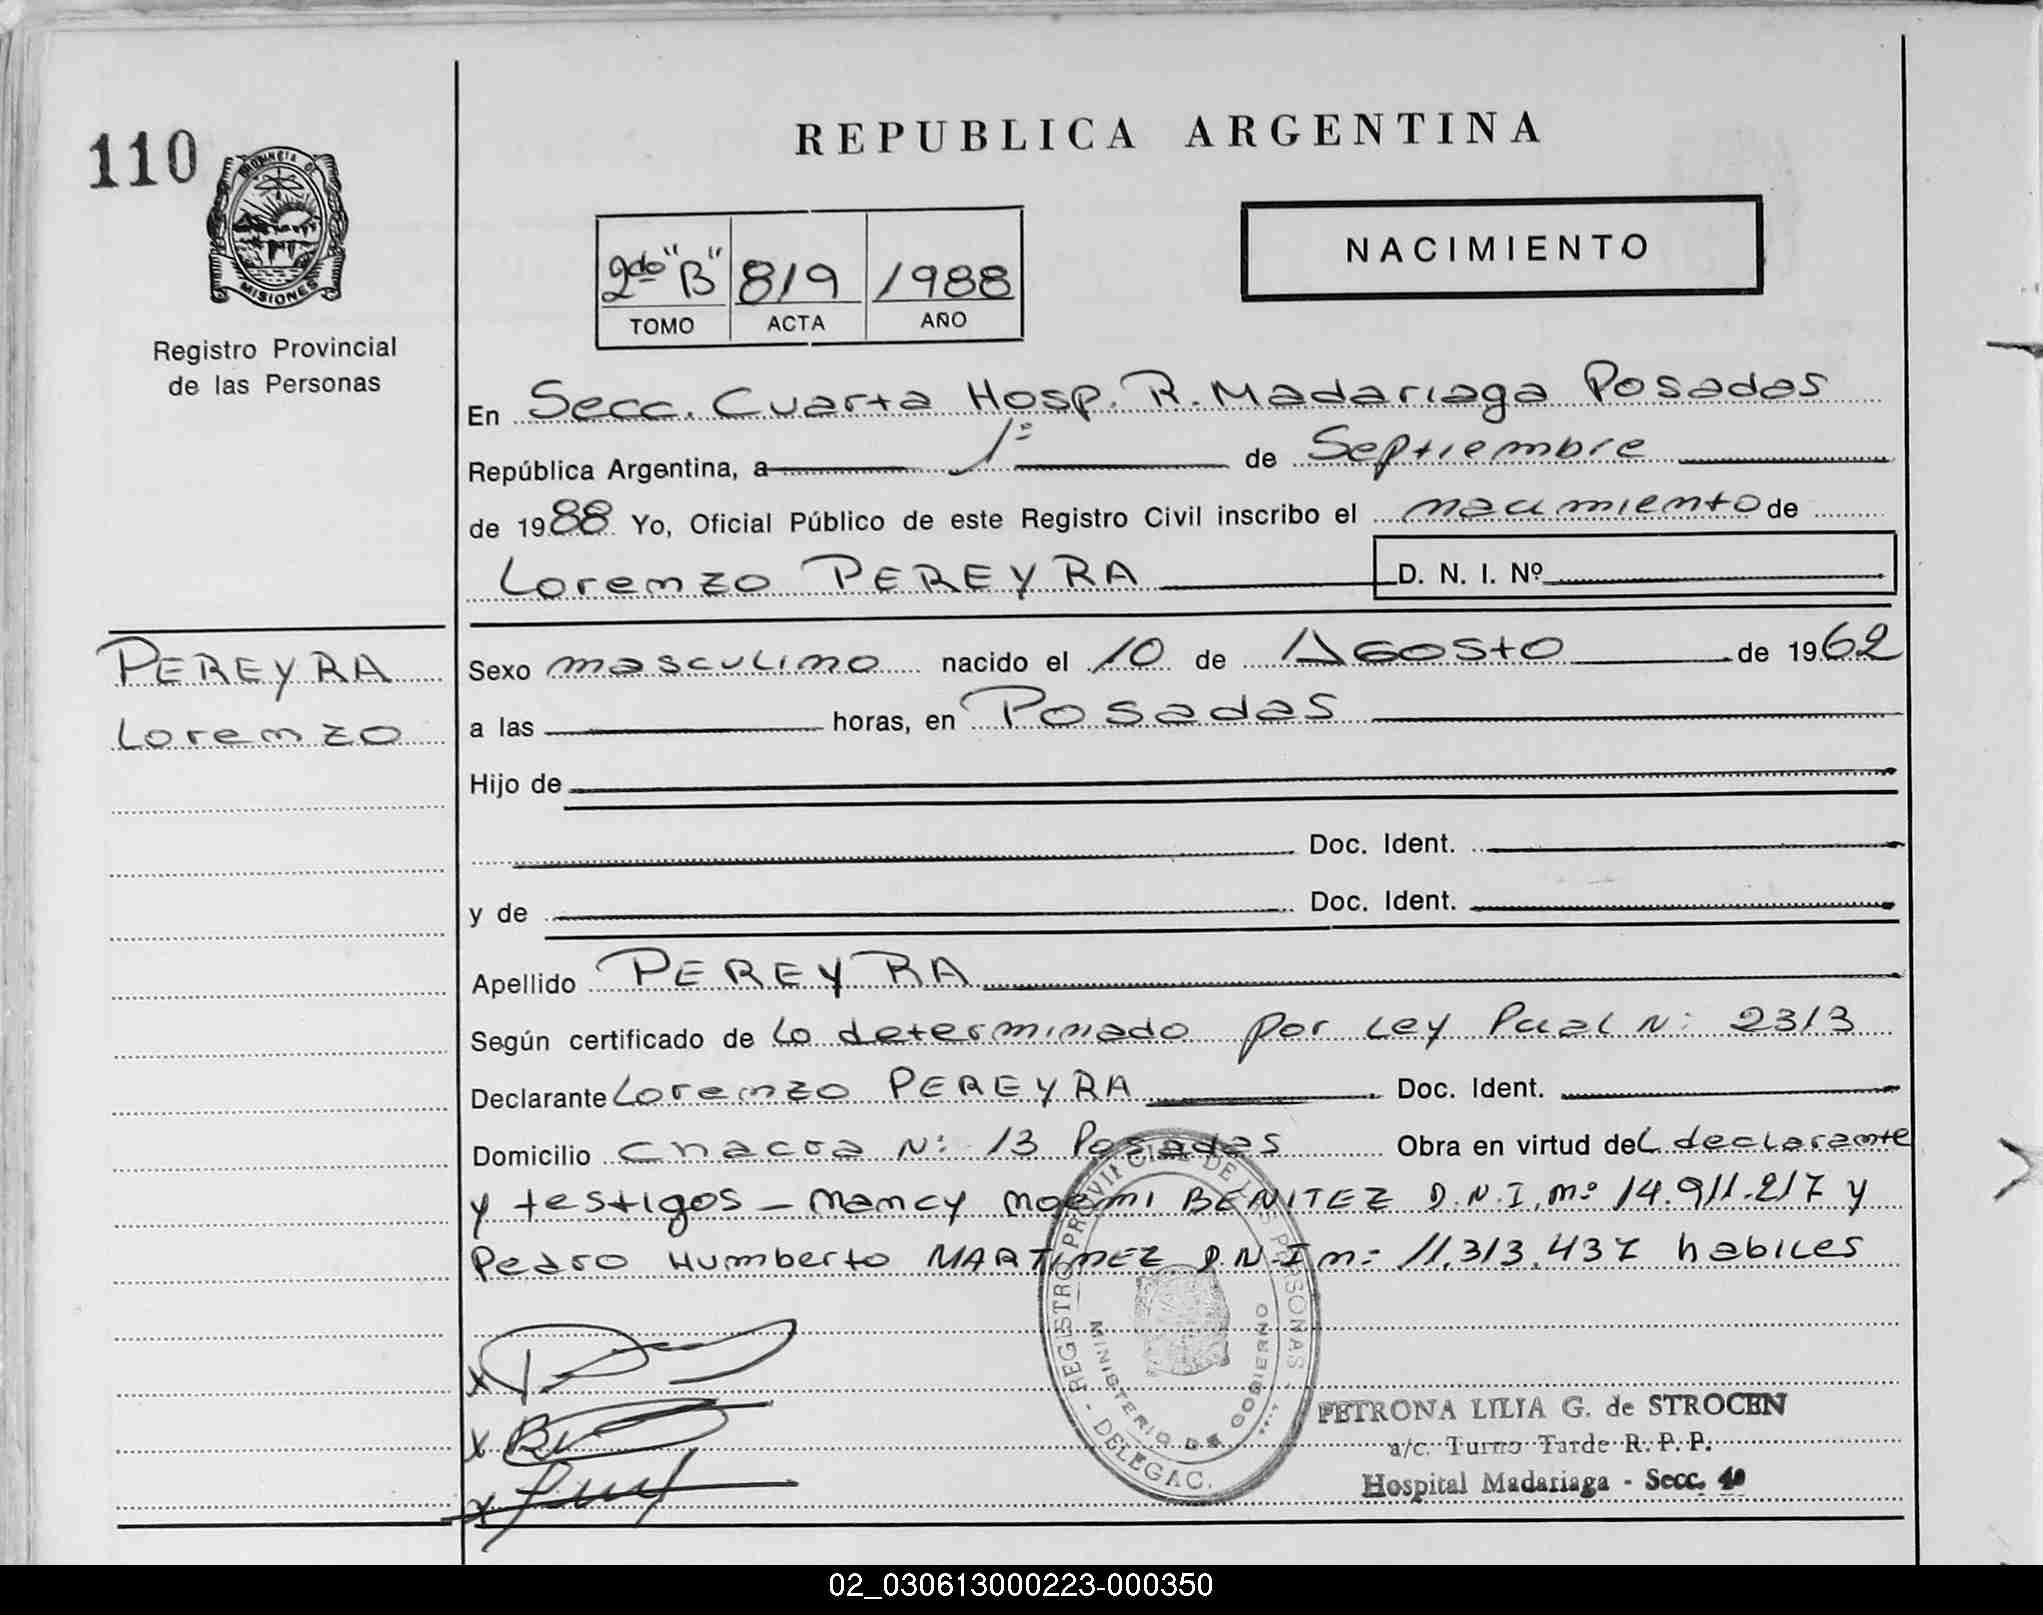 110
PROVINCIA DE
MISIONES
Registro Provincial
de las Personas
REPUBLICA ARGENTINA
2do "B" 819 1988
TOMO ACTA AÑO
NACIMIENTO
En Secc. Cuarta Hosp. R. Madariaga Posadas
República Argentina, a 1º de Septiembre
de 1988 Yo, Oficial Público de este Registro Civil inscribo el nacimiento de
Lorenzo PEREYRA D. N. I. Nº
PEREYRA
Lorenzo
Sexo masculino nacido el 10 de Agosto de 1962
a las horas, en Posadas
Hijo de
Doc. Ident.
y de Doc. Ident.
Apellido PEREYRA
Según certificado de lo determinado por Ley Pcial N: 2313
Declarante Lorenzo PEREYRA Doc. Ident.
Domicilio Chacra N: 13 Posadas Obra en virtud del declarante
y testigos - Nancy Noemi BENITEZ D.N.I. nº 14.911.217 y
Pedro Humberto MARTINEZ D.N.I n: 11.313.437 habiles
REGISTRO PROVINCIAL DE LAS PERSONAS - DELEGAC.
MINISTERIO DE GOBIERNO
PETRONA LILIA G. de STROCEN
a/c. Turno Tarde R. P. P.
Hospital Madariaga - Secc. 4º
02_030613000223-000350